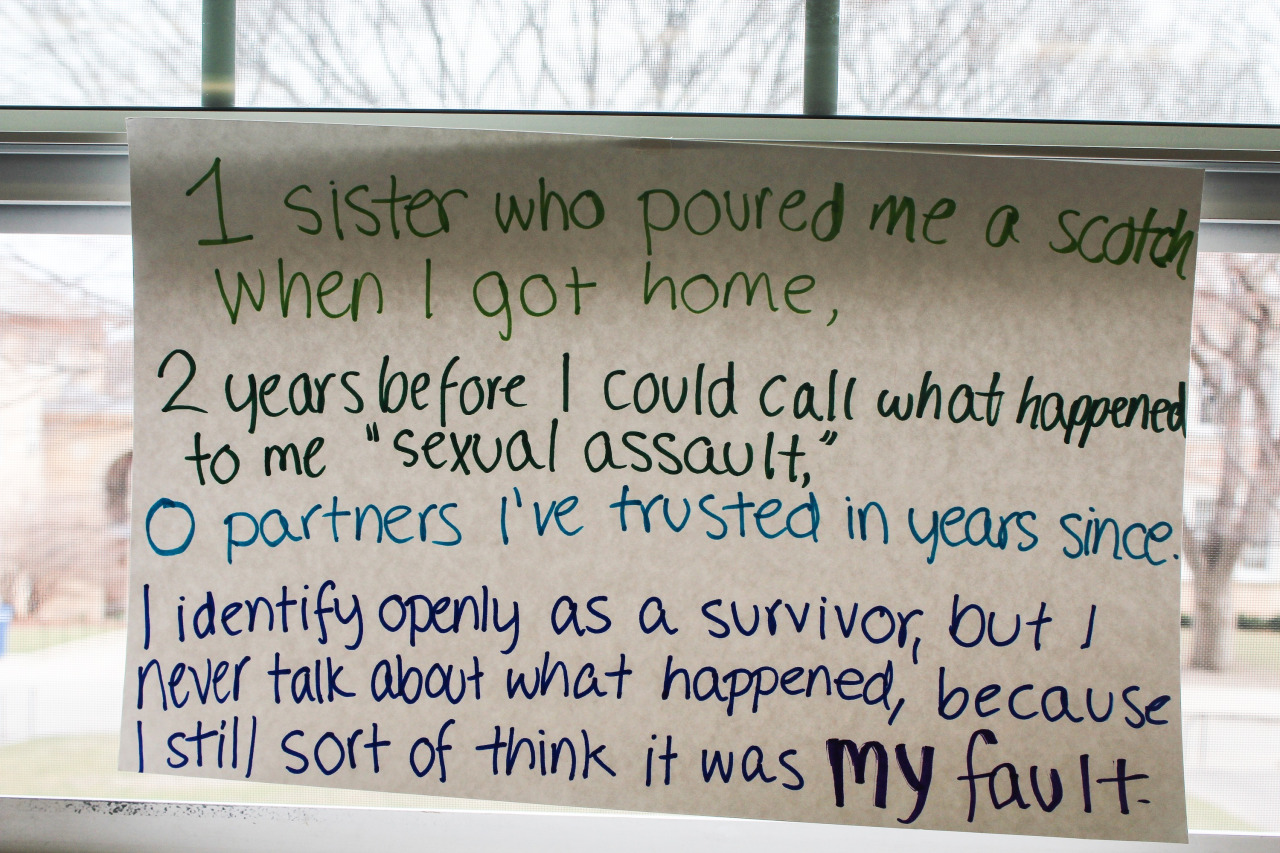 1 sister who poured me a scotch
when I got home,
2 years before I could call what happened
to me "sexual assault,"
0 partners I've trusted in years since.
I identify openly as a survivor, but I
never talk about what happened, because
I still sort of think it was my fault.